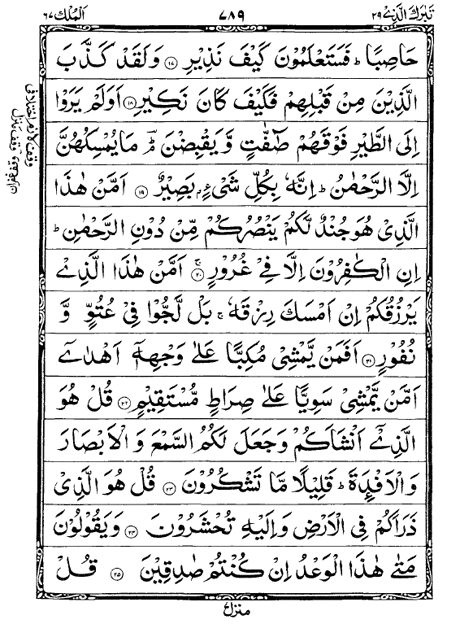 تَبٰرَكَ الَّذِیْ ٢٩ ٧٨٩ اَلْمُلْك ٦٧
حَاصِبًا ؕ فَسَتَعْلَمُوْنَ كَیْفَ نَذِیْرِ ﴿١٧﴾ وَلَقَدْ كَذَّبَ
الَّذِیْنَ مِنْ قَبْلِهِمْ فَكَیْفَ كَانَ نَكِیْرِ ﴿١٨﴾ اَوَلَمْ یَرَوْا
اِلَی الطَّیْرِ فَوْقَهُمْ صٰٓفّٰتٍ وَّیَقْبِضْنَ ؔۘ مَا یُمْسِكُهُنَّ
اِلَّا الرَّحْمٰنُ ؕ اِنَّهٗ بِكُلِّ شَیْءٍۭ بَصِیْرٌ ﴿١٩﴾ اَمَّنْ هٰذَا
الَّذِیْ هُوَ جُنْدٌ لَّكُمْ یَنْصُرُكُمْ مِّنْ دُوْنِ الرَّحْمٰنِ ؕ
اِنِ الْكٰفِرُوْنَ اِلَّا فِیْ غُرُوْرٍ ﴿٢٠﴾ اَمَّنْ هٰذَا الَّذِیْ
یَرْزُقُكُمْ اِنْ اَمْسَكَ رِزْقَهٗ ۚ بَلْ لَّجُّوْا فِیْ عُتُوٍّ وَّ
نُفُوْرٍ ﴿٢١﴾ اَفَمَنْ یَّمْشِیْ مُكِبًّا عَلٰی وَجْهِهٖۤ اَهْدٰۤی
اَمَّنْ یَّمْشِیْ سَوِیًّا عَلٰی صِرَاطٍ مُّسْتَقِیْمٍ ﴿٢٢﴾ قُلْ هُوَ
الَّذِیْۤ اَنْشَاَكُمْ وَجَعَلَ لَكُمُ السَّمْعَ وَ الْاَبْصَارَ
وَالْاَفْـِٕدَةَ ؕ قَلِیْلًا مَّا تَشْكُرُوْنَ ﴿٢٣﴾ قُلْ هُوَ الَّذِیْ
ذَرَاَكُمْ فِی الْاَرْضِ وَاِلَیْهِ تُحْشَرُوْنَ ﴿٢٤﴾ وَیَقُوْلُوْنَ
مَتٰی هٰذَا الْوَعْدُ اِنْ كُنْتُمْ صٰدِقِیْنَ ﴿٢٥﴾ قُلْ
منزل٧